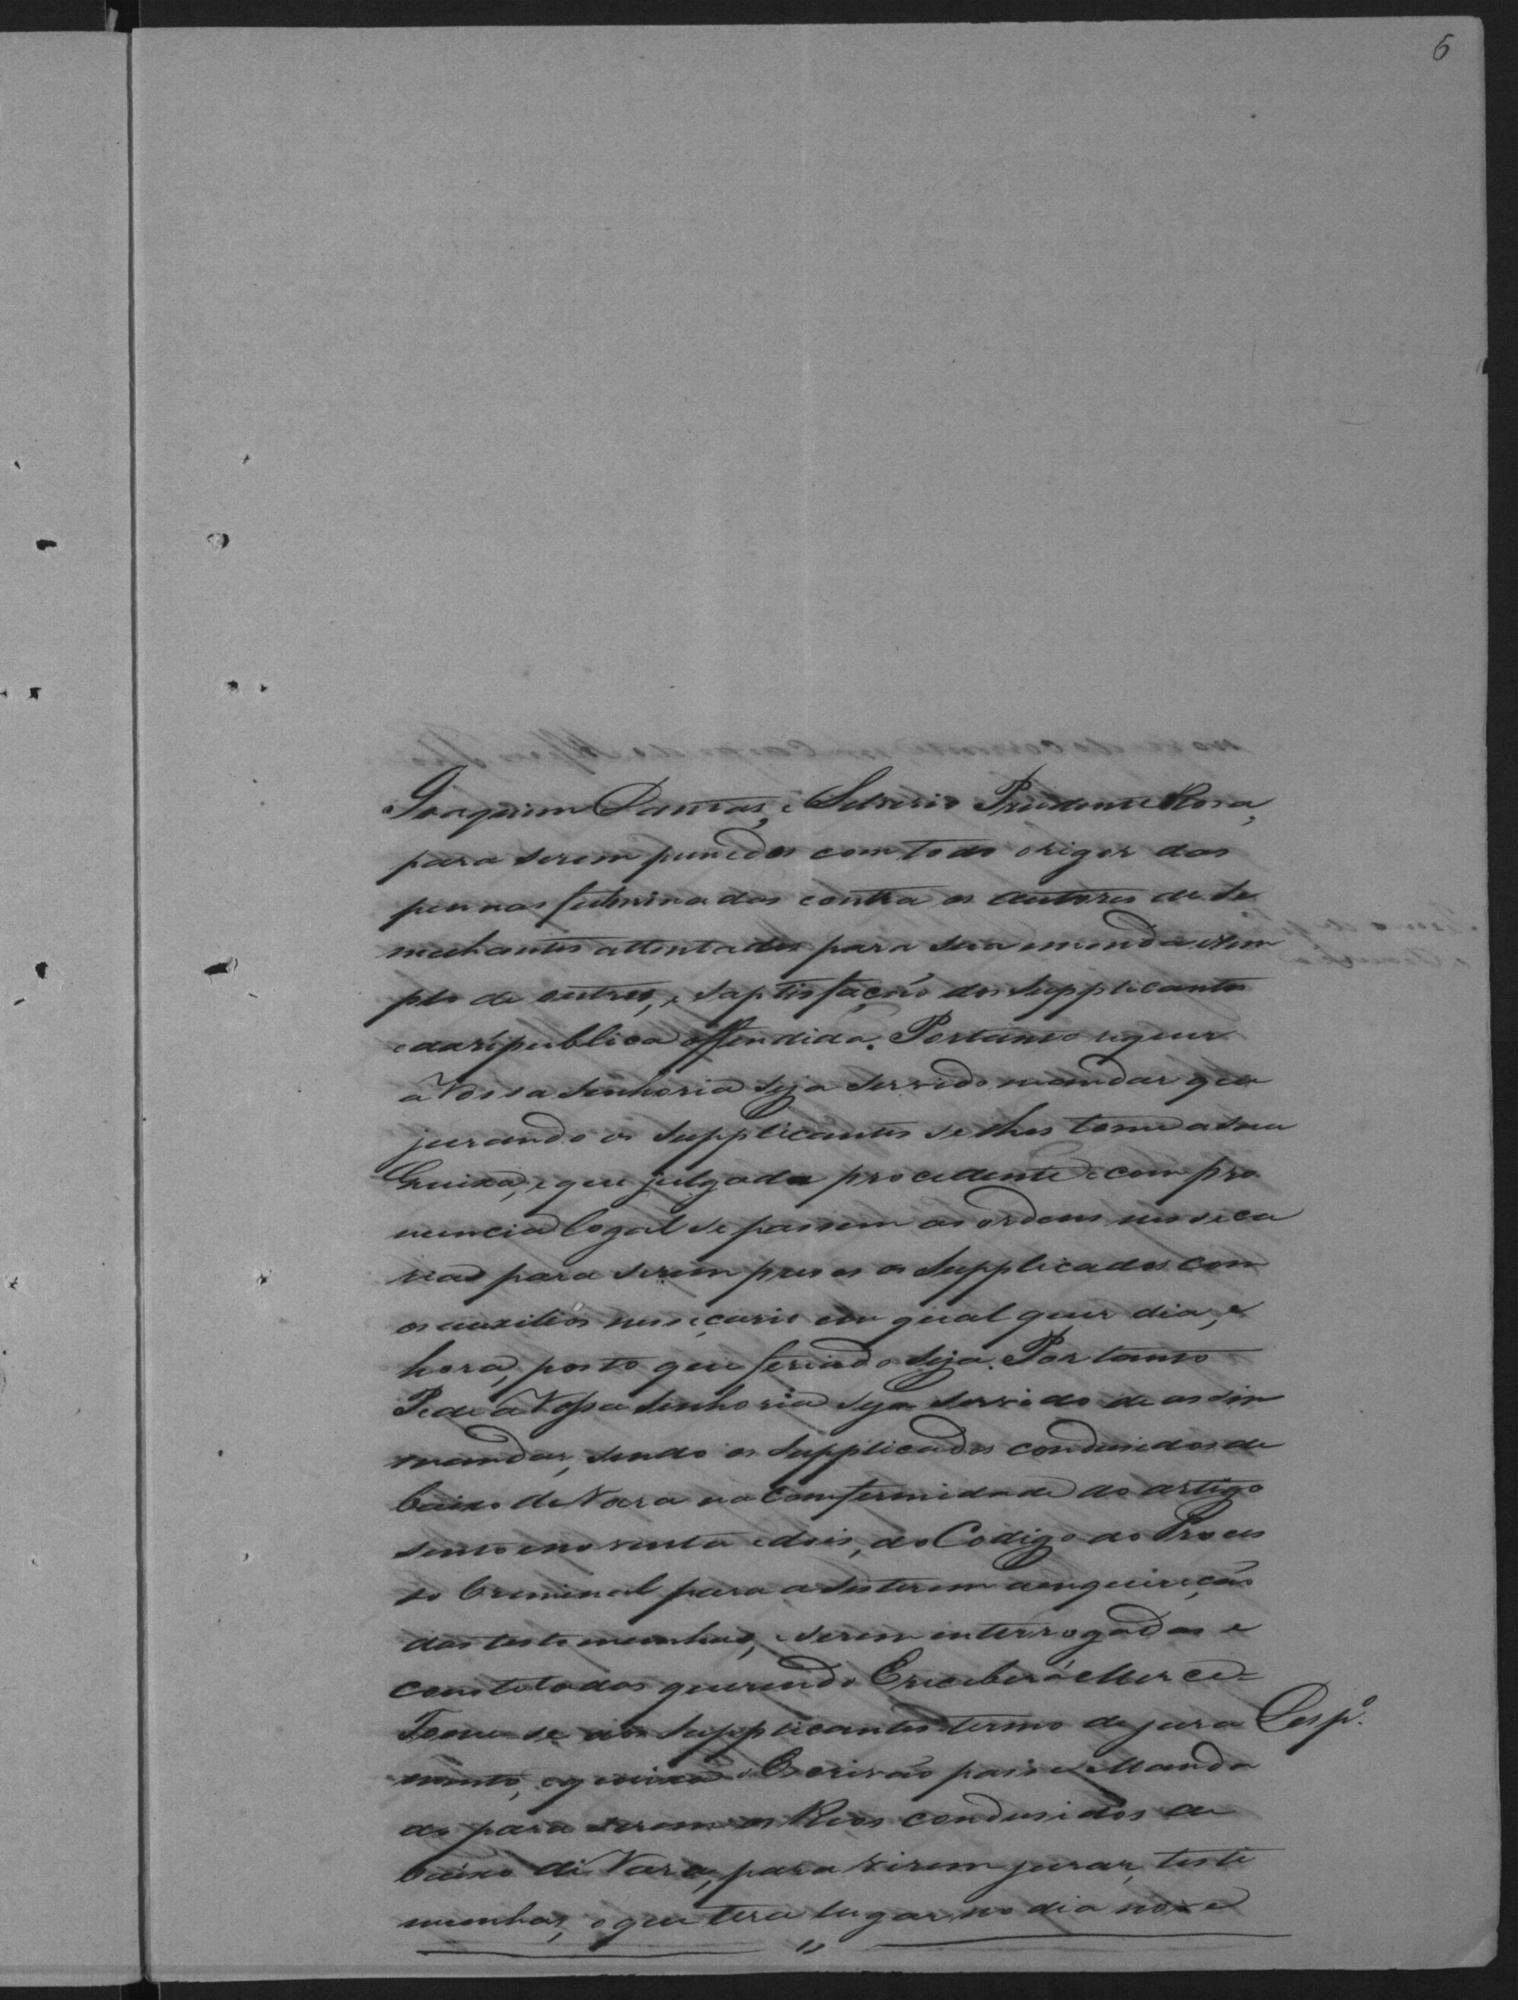 6
Joaquim Dantas, e Silverio Prudente Rosa,
para serem punidos com todo origor das
pennas fulminadas contra os autores de se
mechantes attentados para sua emenda exem
plo de outros, e saptisfação dos Supplicantes
edarepublica offendida. Portanto requer
a Vossa Senhoria seja servido mandar que
jurando os Supplicantes se lhes tome a sua
Queixa, e que julgada procedente e com pro
nuncia legal se passem as ordens nesseca
rias para serem presos os Supplicados com
os auxilios nesseçario em qual quer dia, e
hora, posto que feriado seja. Portanto
Pede a Vossa Senhoria seja servido de assim
mandar, sendo os Supplicados condusidos de
baixo de Vara na comfermidade do artigo
sento e no venta e dois, do Codigo do Proces
so Creminal para a sisterem aenquirição
das teste munhas, e serem interrogados e
comtestados querendo E receberá Merce=
Tome se aos Supplicantes termo de jura Desp.º
mento, e queixa o Escrivão passe Manda
do para serem os Reos condusidos de
baixo di Vara, para virem jurar, teste
munhas, o que tera lugar no dia nove